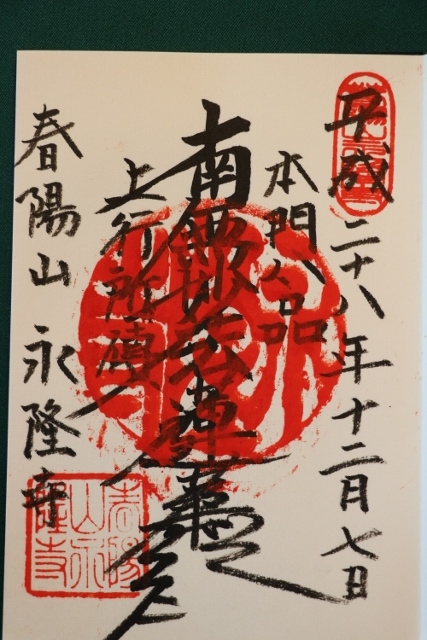 平成二十八年十二月七日
本門八品
南無妙法蓮華経
上行所傳
春陽山永隆寺
春陽山永隆寺